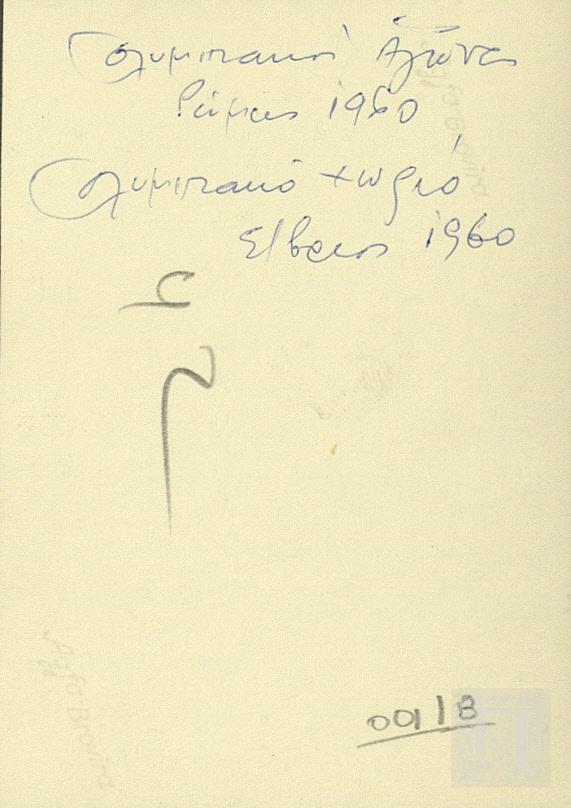 Ολυμπιακοί Αγώνες
Ρώμης 1960
Ολυμπιακό χωριό
1960
00118
Agfa Brovira
Agfa Brovira